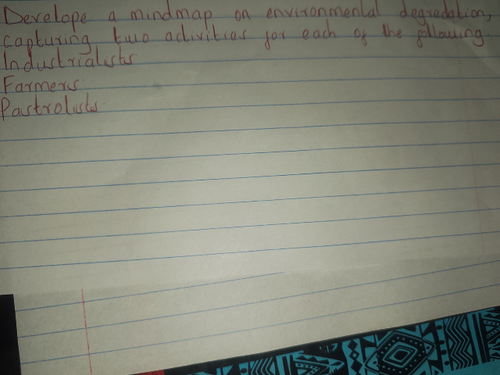 Develope a mindmap on environmental degredation,
capturing two activities for each of the following.
Industrialists
Farmers
Pastrolists